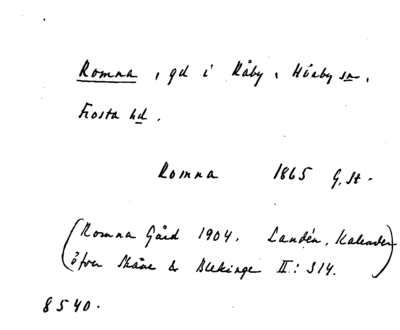 Romna, gd i Råby, Hörby sn,
Frosta hd.
Romna 1865 G. St.
(Romna Gård 1904. Landén, Kalender
öfver Skåne & Blekinge II: 314.)
8540.